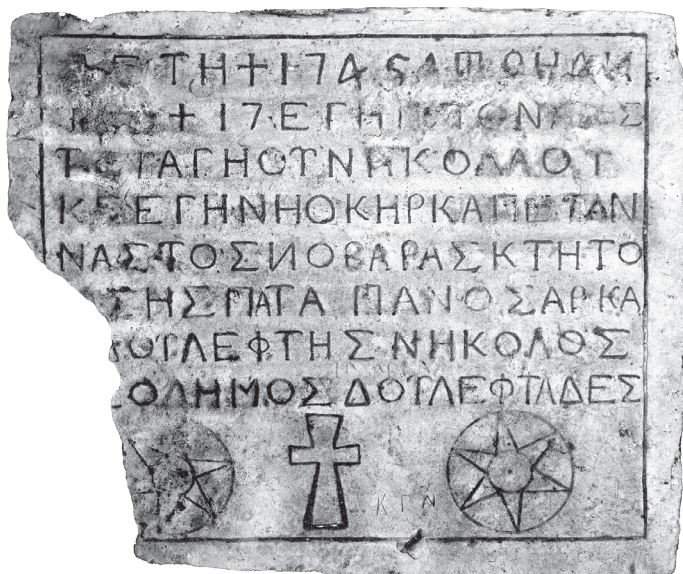 ΕΤΗ + 1745 ΑΠΡΗΛΗ
+ 17 ·
ΤΟΥ ΑΓΗΟΥ ΝΗΚΟΛΑΟΥ
ΚΕ ΕΓΗΝΗ Ο ΚΗΡ ΚΑΠΕΤΑΝ
ΝΑΣΤΟΣ ΝΟΒΑΡΑΣ ΚΤΗΤΟ
ΣΗΣ ΠΑΠΑ ΠΑΝΟΣ ΑΡΚΑ
ΟΥΛΕΦΤΗΣ ΝΗΚΟΛΟΣ
ΟΛΗΜΟΣ ΔΟΥΛΕΦΤΑΔΕΣ
ΚΓΝ